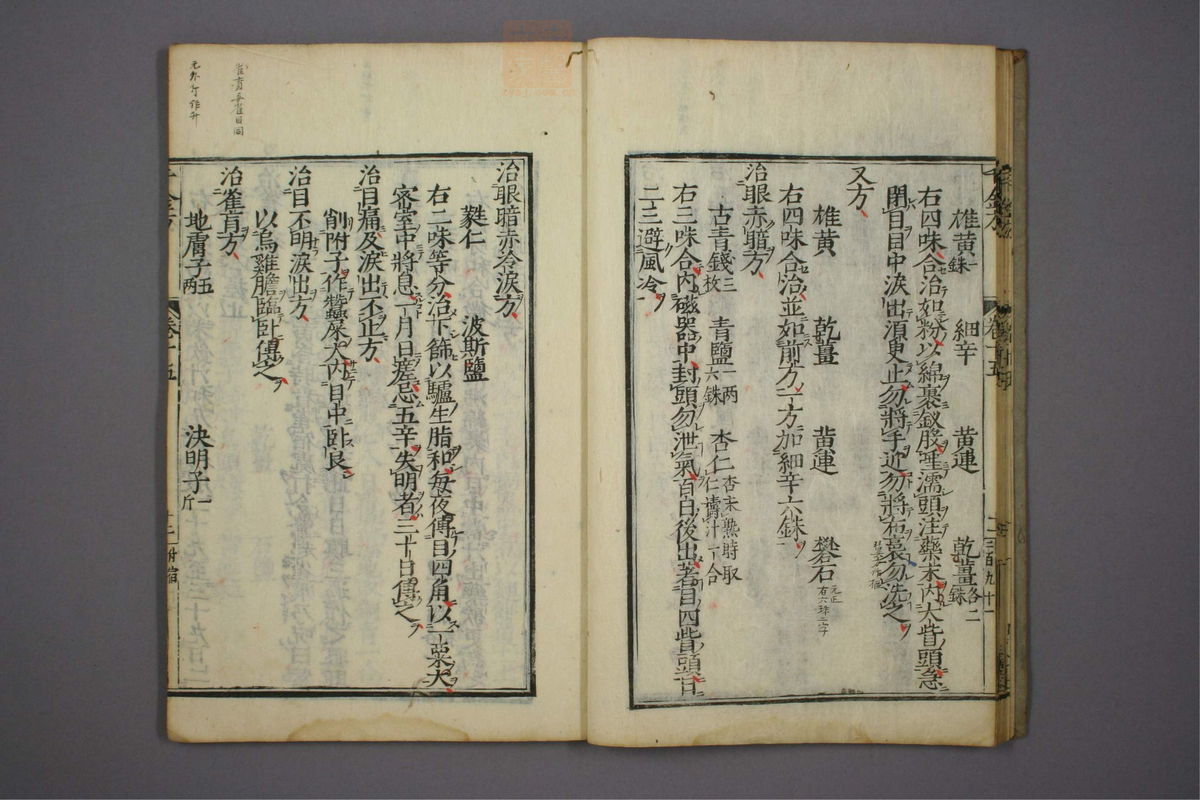 雄黃一銖 細辛 黃連 乾薑各二銖
右四味合治如粉以綿裹釵股唾濡頭注藥末內大眥頭急
閉目目中淚出須臾止勿將手近勿將帛裹勿洗之
又方
雄黃 乾薑 黃連 礬石
右四味合治並如前方一方加細辛六銖
治眼赤暗方
古青錢三枚 青鹽一兩六銖 杏仁杏末熟時取仁濤汁一合
右三味合內磁器中封頭勿泄氣百日後出著目四眥頭日
二三避風冷
治眼暗赤冷淚方
蕤仁 波斯鹽
右二味等分治下篩以驢生脂和每夜傅目四角以一粟大
密室中將息一月日瘥忌五辛失明者三十日傅之
治目痛及淚出不止方
削附子作蠶屎大內目中臥良
治目不明淚出方
以烏雞膽臨臥傅之
治雀盲方
地膚子五兩 決明子一斤
千金方
卷十五